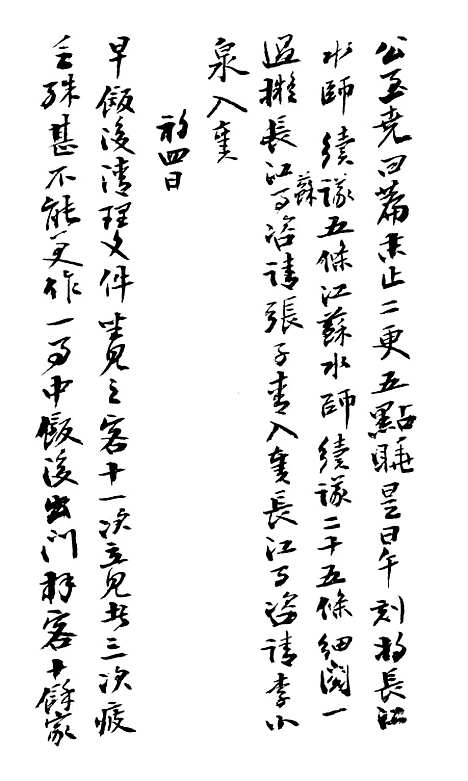 公至堯曰篇末止二更五點睡是日午刻將長江
水師續議五條江蘇水師續議二十五條細閱一
過擬長江蘇可咨請張子青入奏長江可咨請李小
泉入奏
初四日
早飯後清理文件坐見之客十一次立見者三次疲
乏殊甚不能更作一事中飯後出門拜客十餘家